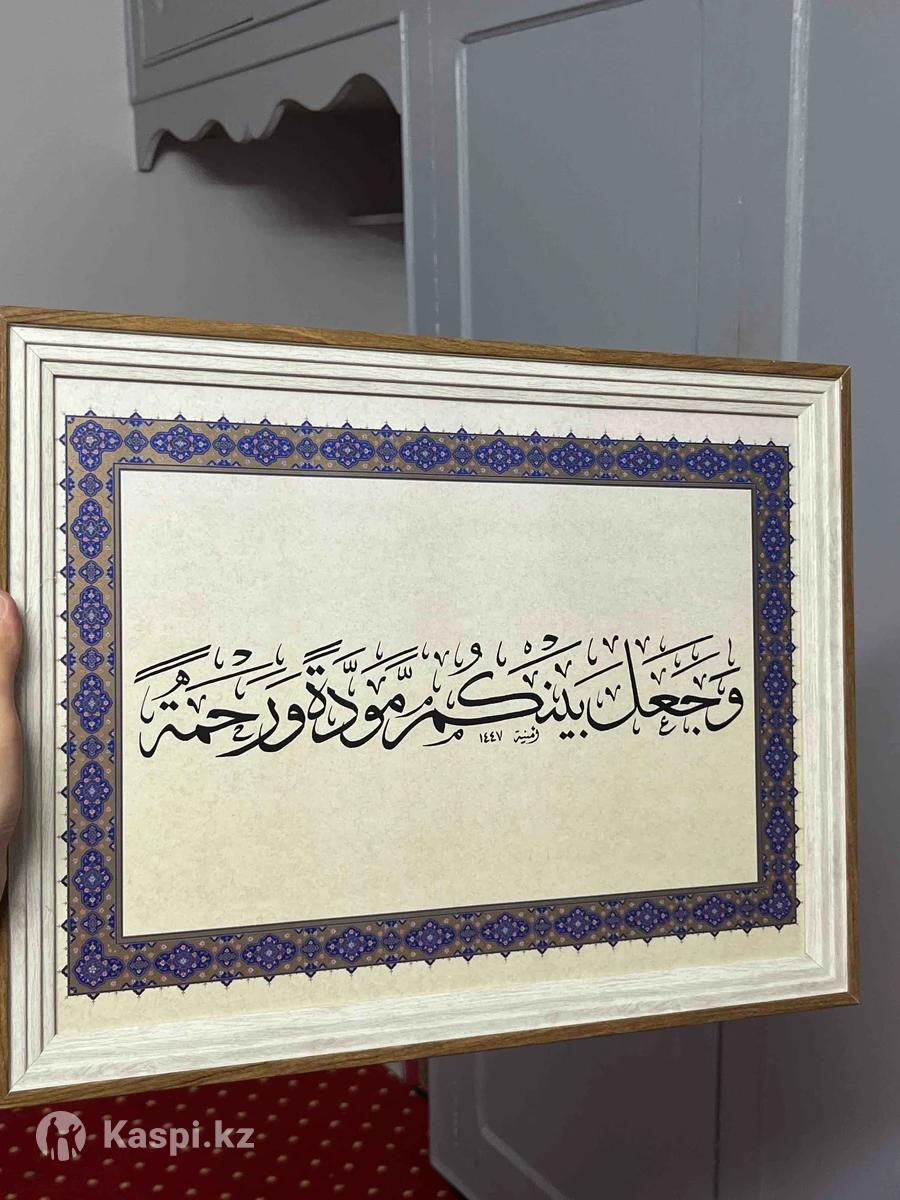 وَجَعَلَ بَيْنَكُمْ مَّوَدَّةً وَرَحْمَةً
١٤٤٧
Kaspi.kz